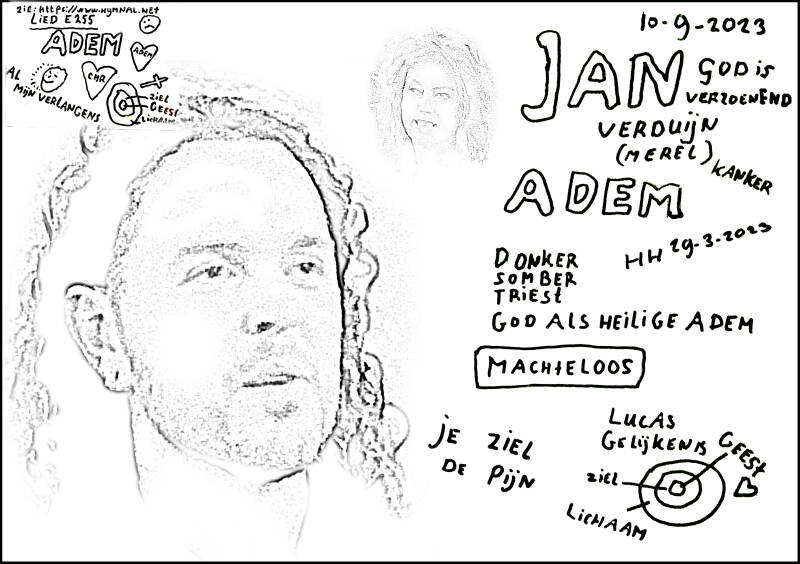 ZIE: HttPS://WWW.HYMNAL.NET
LIED E255
ADEM
ADEM
CHR
AL
MIJN VERLANGENS
ZIEL
GEESt
LICHAAM
10-9-2023
JAN
GOD iS
VERZOENEND
VERDUIJN
(MEREL)
KANKER
ADEM
HH 29-3-2023
DONKER
SOMBER
TRIESt
GOD ALS HEILIGE ADEM
MACHtELOOS
JE ZIEL
DE PIJN
LUCAS
GELIJKENIS
GEESt
ZIEL
LICHAAM